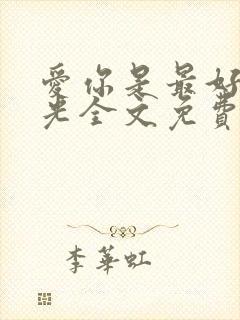 愛你是最好
光全文免費
李華虹